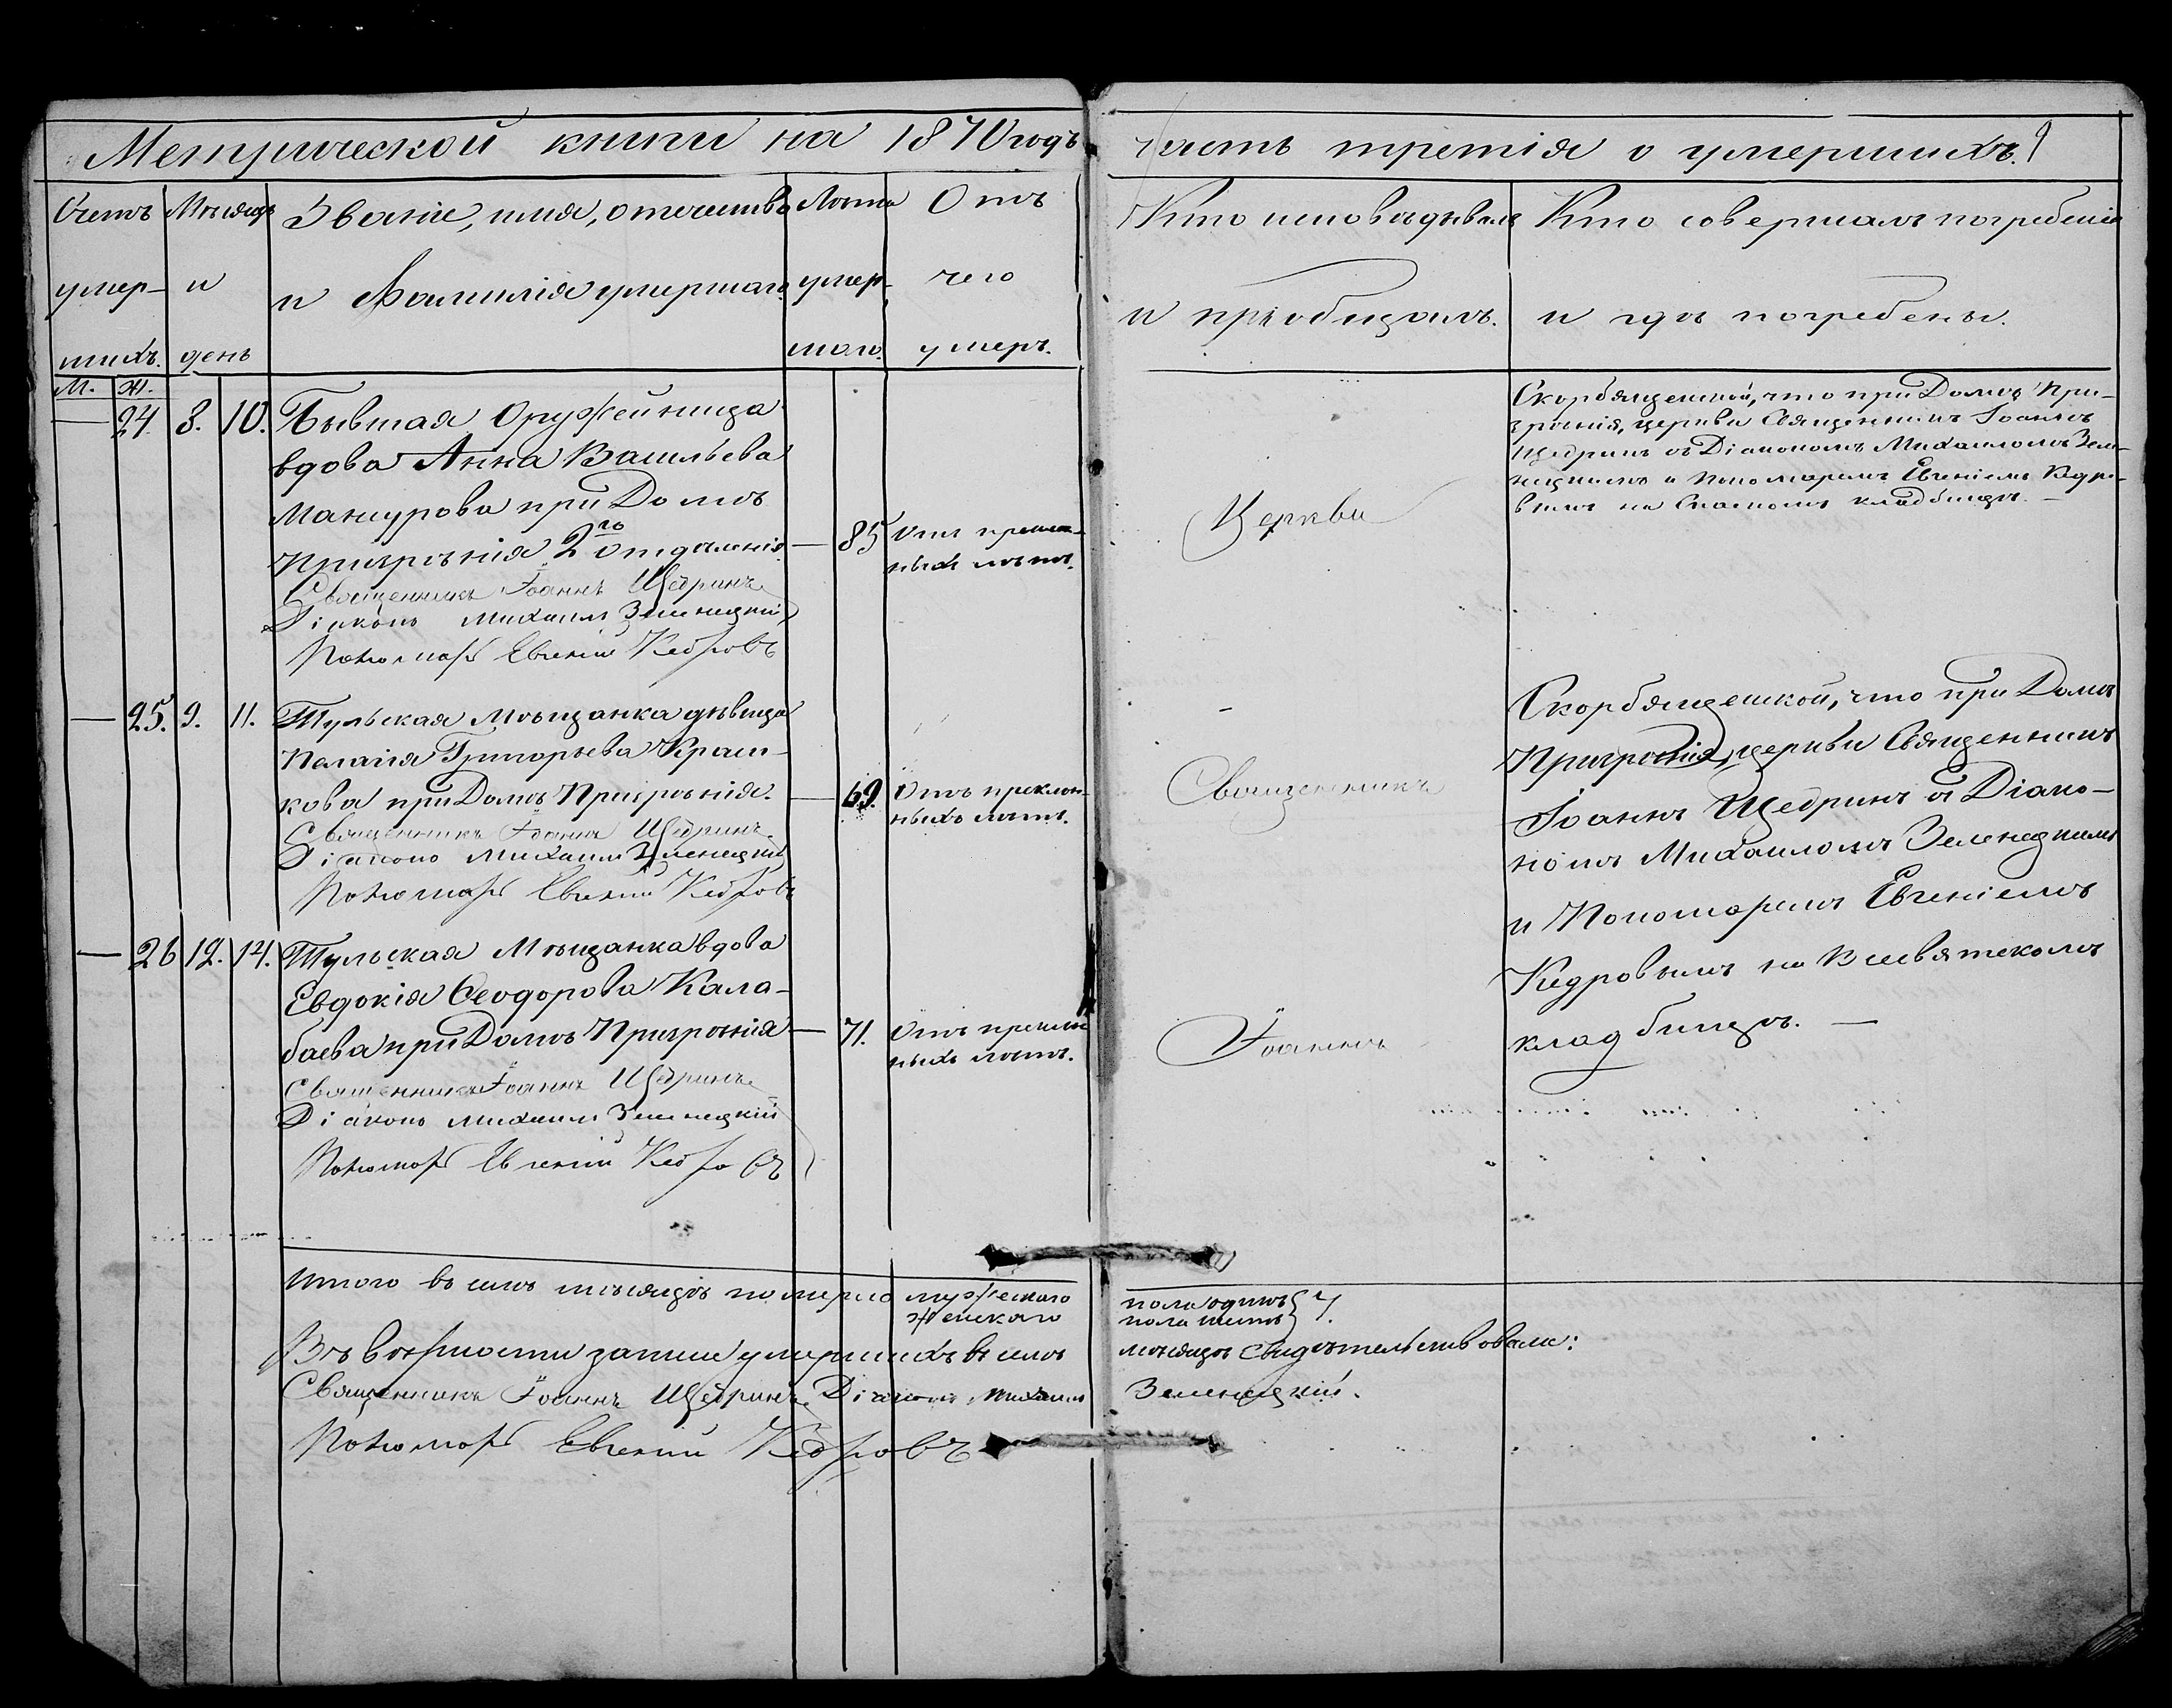 Метрической книги на 1870 годъ
часть третія о умершихъ.
Счетъ умер-шихъ.
М. Ж.
Мѣсяцъ и день
Званіе, имя, отечество
и Фамилія умершаго.
Лѣта умер-шаго.
Отъ чего умеръ.
Кто исповѣдывалъ
и пріобщалъ.
Кто совершалъ погребеніе
и гдѣ погребены.
— 24 8. 10.
Бывшая Оружейница
вдова Анна Васильева
Мансурова при Домѣ
Призрѣнія 2го отдѣленія
— 85
Отъ преклон-
ныхъ лѣтъ.
Священникъ Іоаннъ Щедринъ
Діаконъ Михаилъ Зеленецкій
Пономарь Евгеній Кедровъ
Церкви
Скорбященской, что при Домѣ При-
зрѣнія, церкви Священникъ Іоаннъ
Щедринъ съ Діакономъ Михаиломъ Зеле-
нецкимъ и Пономаремъ Евгеніемъ Кедро-
вымъ на Спаскомъ кладбищѣ. —
— 25. 9. 11.
Тульская Мѣщанка дѣвица
Пелагія Григорьева
кова при Домѣ Призрѣнія.
— 69.
Отъ преклон-
ныхъ лѣтъ.
Священникъ Іоаннъ Щедринъ
Діаконъ Михаилъ Зеленецкій
Пономарь Евгеній Кедровъ
Священникъ
Скорбященской, что при Домѣ
Призрѣнія, церкви Священникъ
Іоаннъ Щедринъ съ Діако-
номъ Михаиломъ Зеленецкимъ
и Пономаремъ Евгеніемъ
Кедровымъ на Всесвятскомъ
кладбищѣ. —
— 26 12. 14.
Тульская Мѣщанка вдова
Евдокія Ѳеодорова Кала-
баева при Домѣ Призрѣнія
— 71.
Отъ преклон-
ныхъ лѣтъ.
Священникъ Іоаннъ Щедринъ
Діаконъ Михаилъ Зеленецкій
Пономарь Евгеній Кедровъ
Іоаннъ
Итого въ семъ мѣсяцѣ померло мужескаго пола одинъ } 7.
женскаго пола шесть
Въ вѣрности записи умершихъ въ семъ мѣсяцѣ свидѣтельствовали:
Священникъ Іоаннъ Щедринъ Діаконъ Михаилъ Зеленецкій.
Пономарь Евгеній Кедровъ